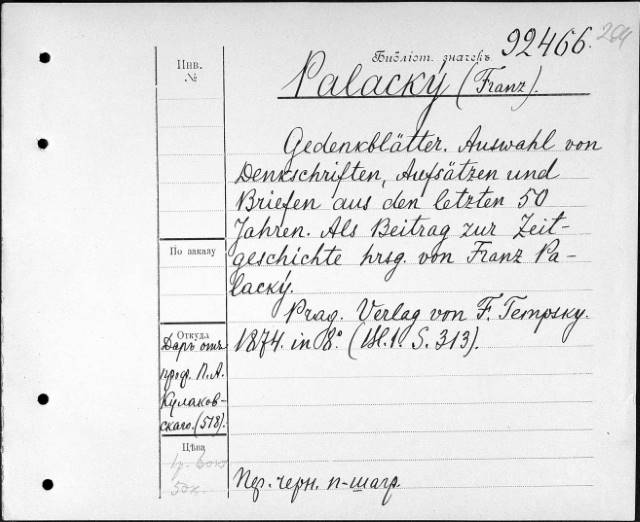 Инв. №
Библіот. значекъ 92466. 264
Palacký (Franz).
Gedenkblätter. Auswahl von
Denkschriften, Aufsätzen und
Briefen aus den letzten 50
Jahren. Als Beitrag zur Zeit-
geschichte hrsg. von Franz Pa-
lacký.
Prag. Verlag von F. Tempsky.
1874. in 8° (Bl. 1. S. 313).
По заказу
Откуда
Даръ отъ
проф. П. А.
Кулаков-
скаго. (518).
Цѣна
50 к.
Пер. черн. п-шагр.